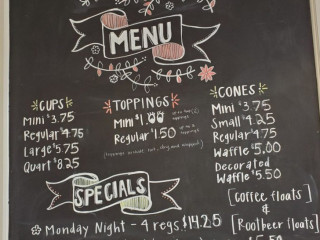 MENU
CUPS
Mini $3.75
Regular $4.75
Large $5.75
Quart $8.25
TOPPINGS
Mini $1.00
Regular $1.50
CONES
Mini $3.75
Small $4.25
Regular $4.75
Waffle $5.00
Decorated
Waffle $5.50
[Coffee floats]
&
[Rootbeer floats]
SPECIALS
Monday Night - 4 regs $14.25